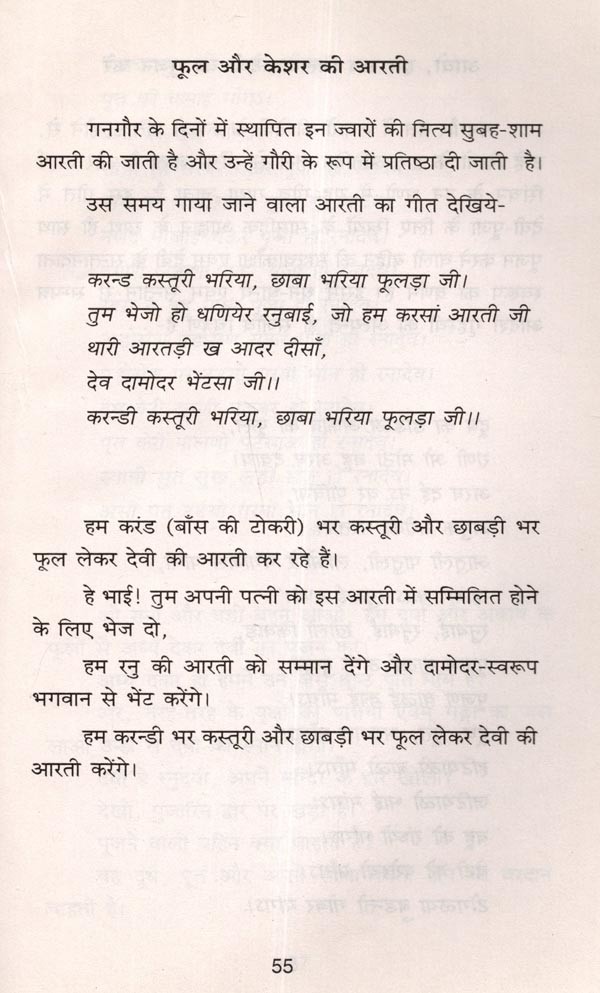 फूल और केशर की आरती
गनगौर के दिनों में स्थापित इन ज्वारों की नित्य सुबह-शाम
आरती की जाती है और उन्हें गौरी के रूप में प्रतिष्ठा दी जाती है।
उस समय गाया जाने वाला आरती का गीत देखिये-
करन्ड कस्तूरी भरिया, छाबा भरिया फूलड़ा जी।
तुम भेजो हो धणियेर रनुबाई, जो हम करसां आरती जी
थारी आरतड़ी ख आदर दीसाँ,
देव दामोदर भेंटसा जी।।
करन्डी कस्तूरी भरिया, छाबा भरिया फूलड़ा जी।।
हम करंड (बाँस की टोकरी) भर कस्तूरी और छाबड़ी भर
फूल लेकर देवी की आरती कर रहे हैं।
हे भाई! तुम अपनी पत्नी को इस आरती में सम्मिलित होने
के लिए भेज दो,
हम रनु की आरती को सम्मान देंगे और दामोदर-स्वरूप
भगवान से भेंट करेंगे।
हम करन्डी भर कस्तूरी और छाबड़ी भर फूल लेकर देवी की
आरती करेंगे।
55